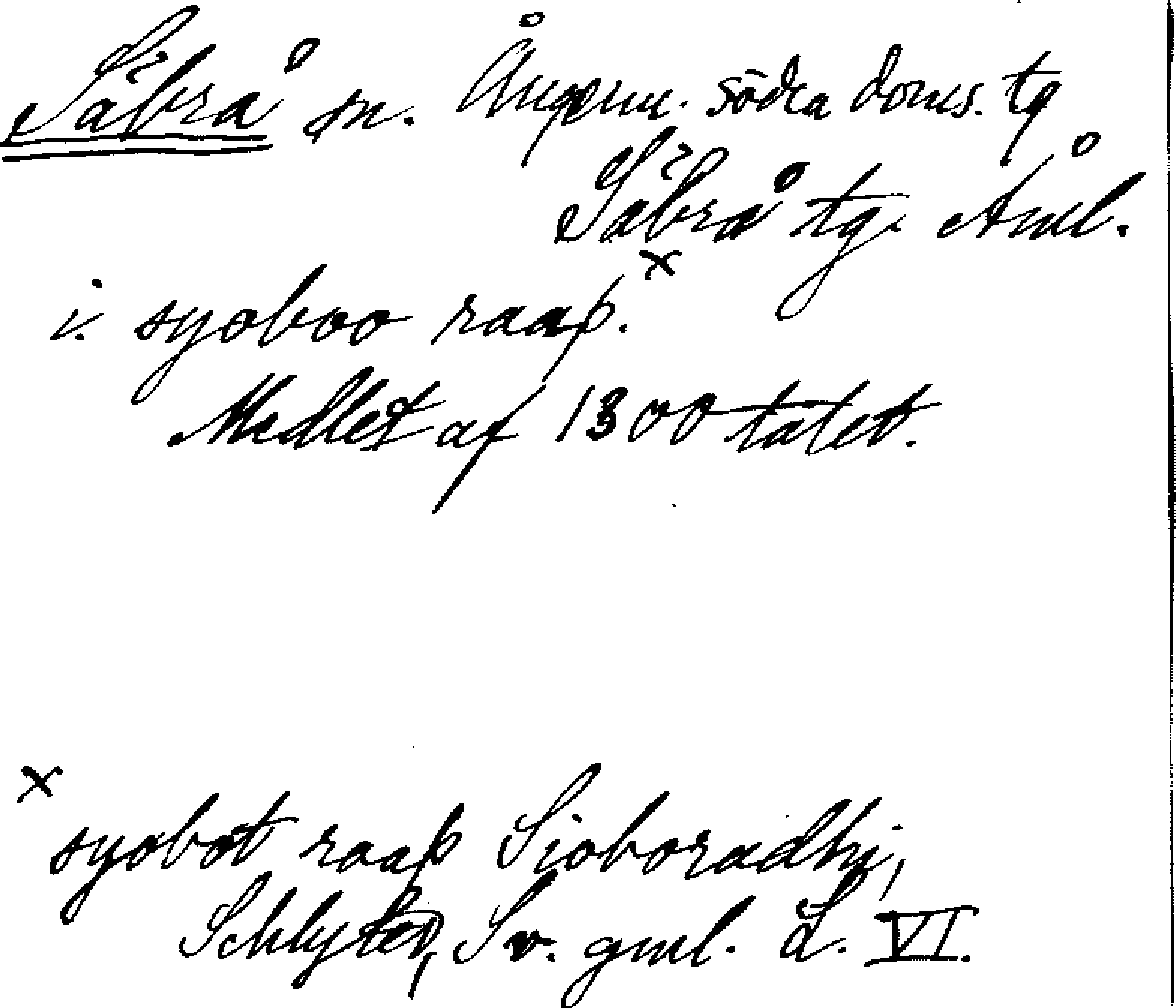 Säbrå sn. Ångerm. södra doms. tg
Säbrå tg. Åml.
i. syoboo raaþ. x
Medlet af 1300 talet.
x
syobot raaþ Sioboradhi,
Schlyter, Sv. gml. L. VI.